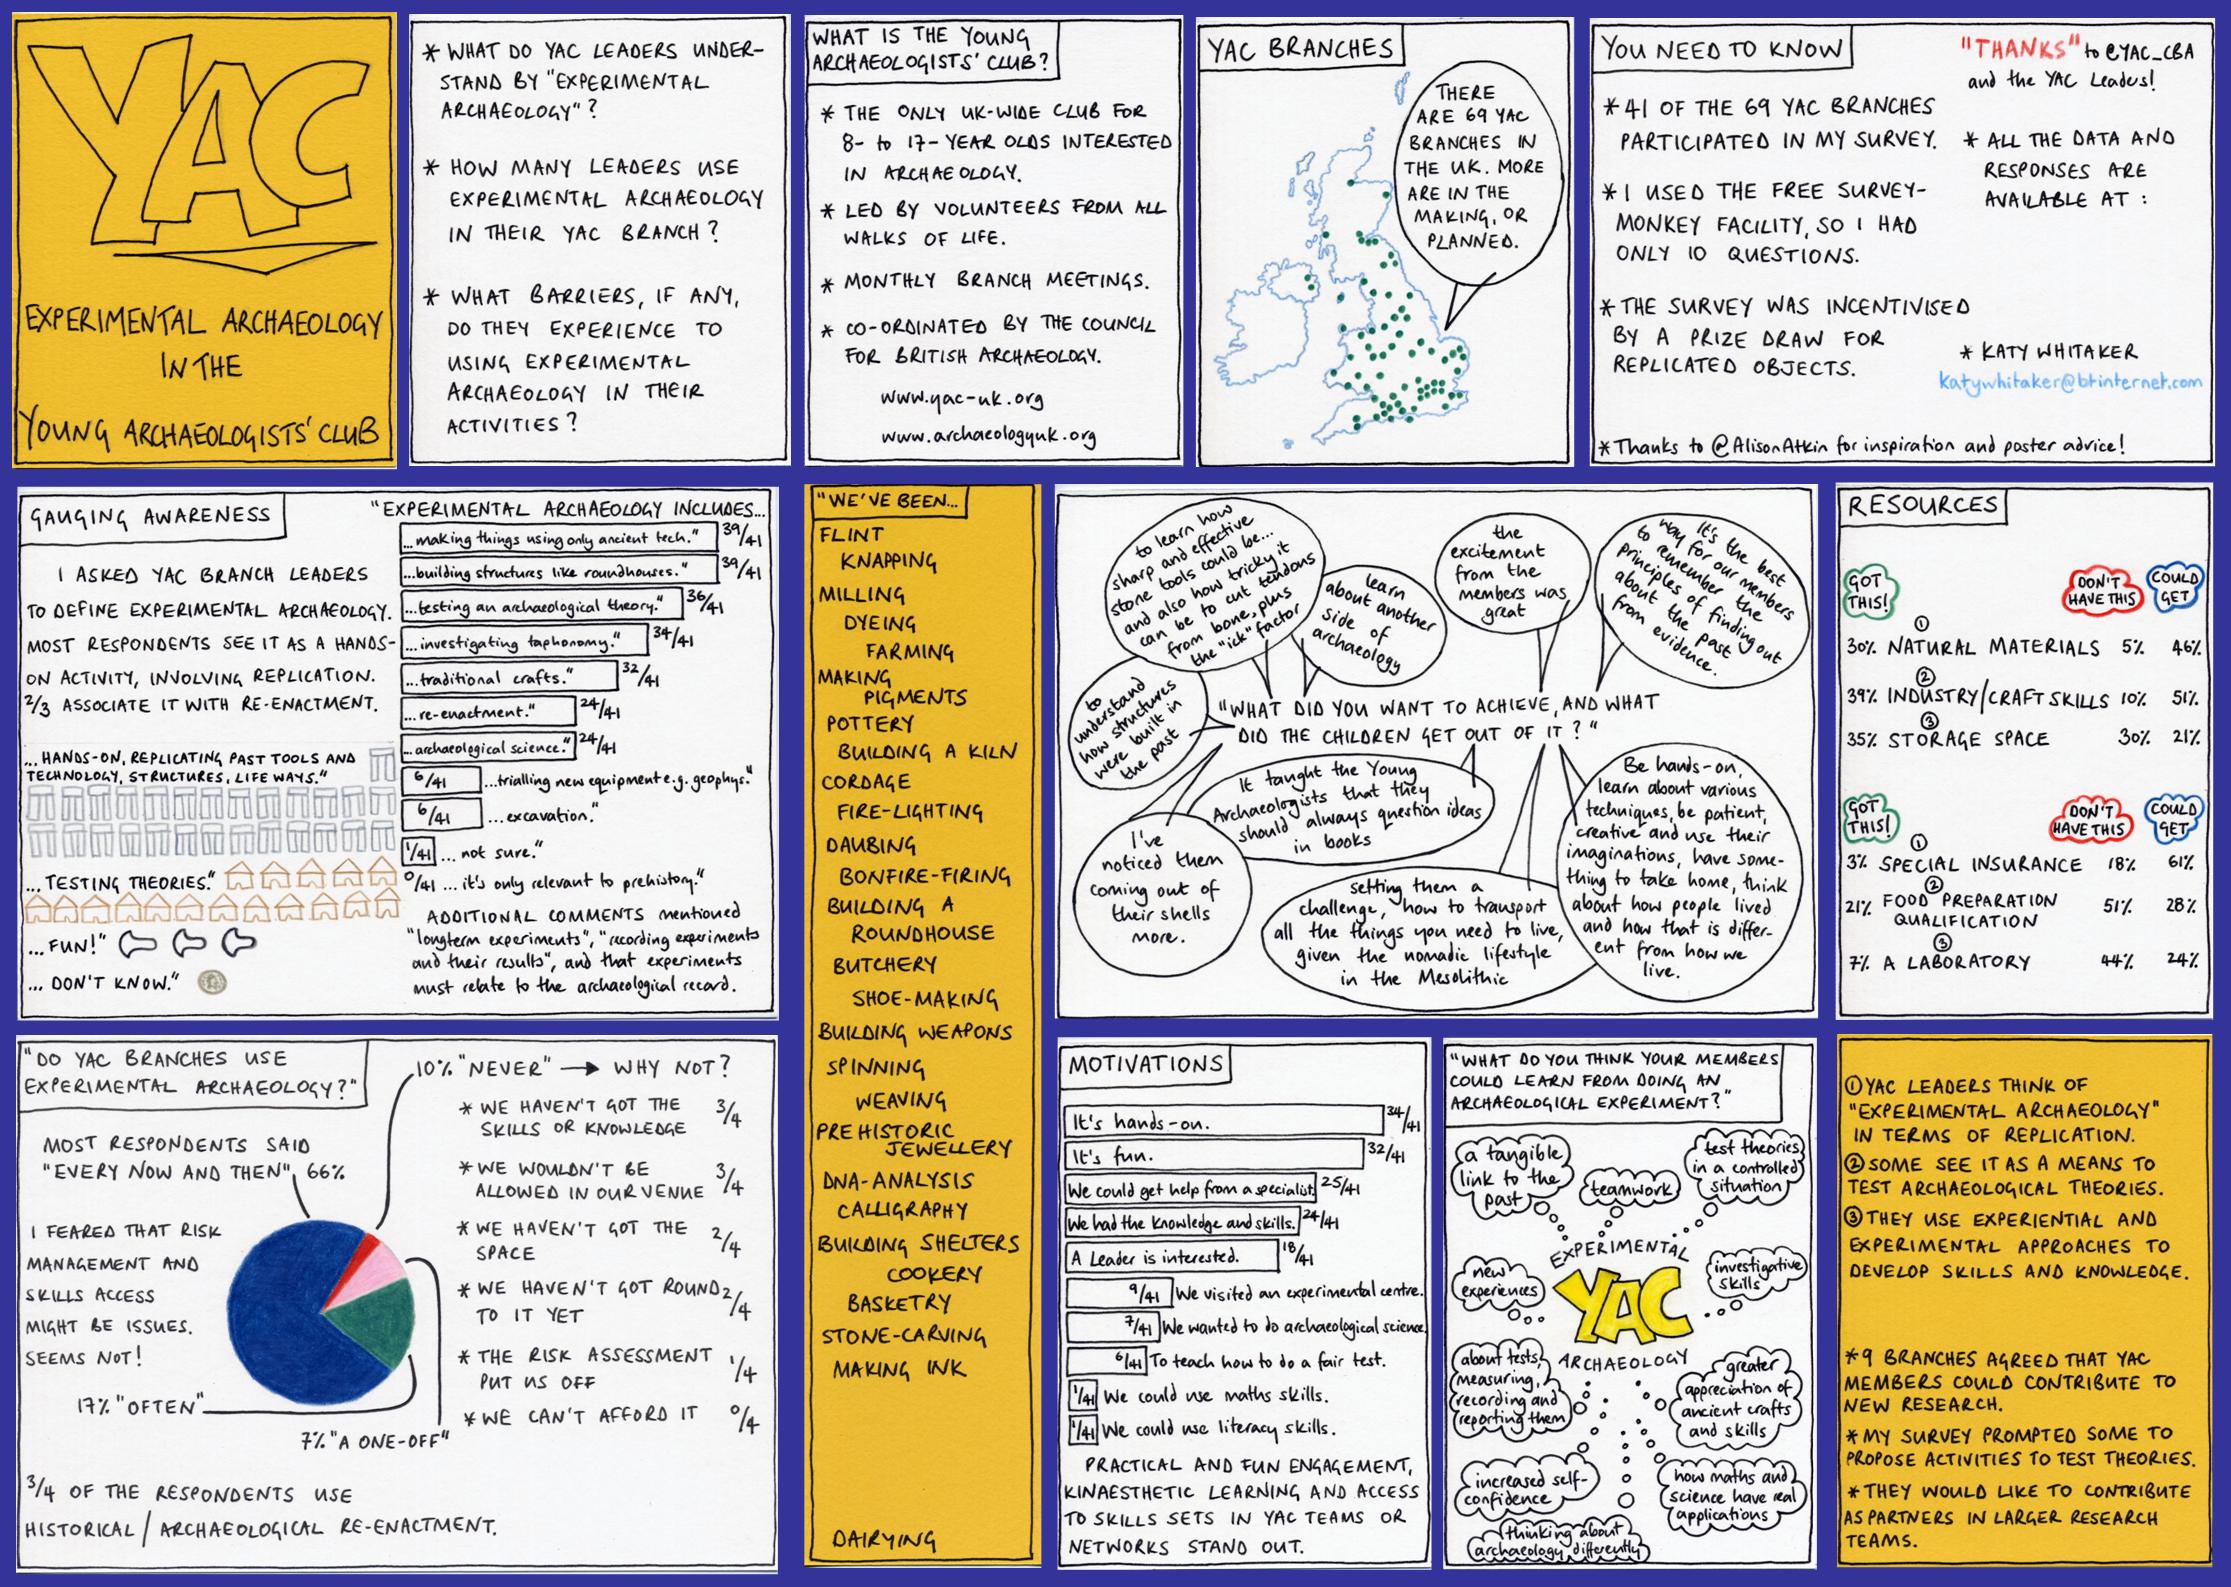 YAC
EXPERIMENTAL ARCHAEOLOGY
IN THE
YOUNG ARCHAEOLOGISTS' CLUB
* WHAT DO YAC LEADERS UNDER-
STAND BY "EXPERIMENTAL
ARCHAEOLOGY"?
* HOW MANY LEADERS USE
EXPERIMENTAL ARCHAEOLOGY
IN THEIR YAC BRANCH?
* WHAT BARRIERS, IF ANY,
DO THEY EXPERIENCE TO
USING EXPERIMENTAL
ARCHAEOLOGY IN THEIR
ACTIVITIES?
WHAT IS THE YOUNG
ARCHAEOLOGISTS' CLUB?
* THE ONLY UK-WIDE CLUB FOR
8- to 17-YEAR OLDS INTERESTED
IN ARCHAEOLOGY.
* LED BY VOLUNTEERS FROM ALL
WALKS OF LIFE.
* MONTHLY BRANCH MEETINGS.
* CO-ORDINATED BY THE COUNCIL
FOR BRITISH ARCHAEOLOGY.
www.yac-uk.org
www.archaeologyuk.org
YAC BRANCHES
THERE
ARE 69 YAC
BRANCHES IN
THE UK. MORE
ARE IN THE
MAKING, OR
PLANNED.
YOU NEED TO KNOW
* 41 OF THE 69 YAC BRANCHES
PARTICIPATED IN MY SURVEY.
* I USED THE FREE SURVEY-
MONKEY FACILITY, SO I HAD
ONLY 10 QUESTIONS.
* THE SURVEY WAS INCENTIVISED
BY A PRIZE DRAW FOR
REPLICATED OBJECTS.
"THANKS" to @YAC_CBA
and the YAC Leaders!
* ALL THE DATA AND
RESPONSES ARE
AVAILABLE AT :
* KATY WHITAKER
katywhitaker@btinternet.com
* Thanks to @AlisonAtkin for inspiration and poster advice!
GAUGING AWARENESS
I ASKED YAC BRANCH LEADERS
TO DEFINE EXPERIMENTAL ARCHAEOLOGY.
MOST RESPONDENTS SEE IT AS A HANDS-
ON ACTIVITY, INVOLVING REPLICATION.
2/3 ASSOCIATE IT WITH RE-ENACTMENT.
...HANDS-ON, REPLICATING PAST TOOLS AND
TECHNOLOGY, STRUCTURES, LIFE WAYS."
...TESTING THEORIES."
...FUN!"
... DON'T KNOW."
"EXPERIMENTAL ARCHAEOLOGY INCLUDES...
...making things using only ancient tech." 39/41
...building structures like roundhouses." 39/41
...testing an archaeological theory." 36/41
...investigating taphonomy." 34/41
...traditional crafts." 32/41
...re-enactment." 24/41
...archaeological science." 24/41
6/41 ...trialling new equipment e.g. geophys."
6/41 ...excavation."
1/41 ... not sure."
0/41 ... it's only relevant to prehistory."
ADDITIONAL COMMENTS mentioned
"longterm experiments", "recording experiments
and their results", and that experiments
must relate to the archaeological record.
"WE'VE BEEN...
FLINT
KNAPPING
MILLING
DYEING
FARMING
MAKING
PIGMENTS
POTTERY
BUILDING A KILN
CORDAGE
FIRE-LIGHTING
DAUBING
BONFIRE-FIRING
BUILDING A
ROUNDHOUSE
BUTCHERY
SHOE-MAKING
BUILDING WEAPONS
SPINNING
WEAVING
PREHISTORIC
JEWELLERY
DNA-ANALYSIS
CALLIGRAPHY
BUILDING SHELTERS
COOKERY
BASKETRY
STONE-CARVING
MAKING INK
DAIRYING
to learn how
sharp and effective
stone tools could be...
and also how tricky it
can be to cut tendons
from bone, plus
the "ick" factor
learn
about another
side of
archaeology
the
excitement
from the
members was
great
It's the best
way for our members
to remember the
principles of finding out
about the past
from evidence.
to
understand
how structures
were built in
the past
"WHAT DID YOU WANT TO ACHIEVE, AND WHAT
DID THE CHILDREN GET OUT OF IT?"
It taught the Young
Archaeologists that they
should always question ideas
in books
I've
noticed them
coming out of
their shells
more.
setting them a
challenge, how to transport
all the things you need to live,
given the nomadic lifestyle
in the Mesolithic
Be hands-on,
learn about various
techniques, be patient,
creative and use their
imaginations, have some-
thing to take home, think
about how people lived
and how that is differ-
ent from how we
live.
RESOURCES
GOT
THIS!
DON'T
HAVE THIS
COULD
GET
①
30% NATURAL MATERIALS 5% 46%
②
39% INDUSTRY/CRAFT SKILLS 10% 51%
③
35% STORAGE SPACE 30% 21%
GOT
THIS!
DON'T
HAVE THIS
COULD
GET
①
3% SPECIAL INSURANCE 18% 61%
②
21% FOOD PREPARATION 51% 28%
QUALIFICATION
③
7% A LABORATORY 44% 24%
"DO YAC BRANCHES USE
EXPERIMENTAL ARCHAEOLOGY?"
MOST RESPONDENTS SAID
"EVERY NOW AND THEN", 66%
I FEARED THAT RISK
MANAGEMENT AND
SKILLS ACCESS
MIGHT BE ISSUES.
SEEMS NOT!
17% "OFTEN"
7% "A ONE-OFF"
3/4 OF THE RESPONDENTS USE
HISTORICAL/ARCHAEOLOGICAL RE-ENACTMENT.
10% "NEVER" → WHY NOT?
* WE HAVEN'T GOT THE 3/4
SKILLS OR KNOWLEDGE
* WE WOULDN'T BE 3/4
ALLOWED IN OUR VENUE
* WE HAVEN'T GOT THE 2/4
SPACE
* WE HAVEN'T GOT ROUND 2/4
TO IT YET
* THE RISK ASSESSMENT 1/4
PUT US OFF
* WE CAN'T AFFORD IT 0/4
MOTIVATIONS
It's hands-on. 34/41
It's fun. 32/41
We could get help from a specialist. 25/41
We had the knowledge and skills. 24/41
A Leader is interested. 18/41
9/41 We visited an experimental centre.
7/41 We wanted to do archaeological science.
6/41 To teach how to do a fair test.
1/41 We could use maths skills.
1/41 We could use literacy skills.
PRACTICAL AND FUN ENGAGEMENT,
KINAESTHETIC LEARNING AND ACCESS
TO SKILLS SETS IN YAC TEAMS OR
NETWORKS STAND OUT.
"WHAT DO YOU THINK YOUR MEMBERS
COULD LEARN FROM DOING AN
ARCHAEOLOGICAL EXPERIMENT?"
a tangible
link to the
past
teamwork
test theories
in a controlled
situation
new
experiences
EXPERIMENTAL
YAC
ARCHAEOLOGY
investigative
skills
about tests,
measuring,
recording and
reporting them
greater
appreciation of
ancient crafts
and skills
increased self-
confidence
how maths and
science have real
applications
thinking about
archaeology differently
① YAC LEADERS THINK OF
"EXPERIMENTAL ARCHAEOLOGY"
IN TERMS OF REPLICATION.
② SOME SEE IT AS A MEANS TO
TEST ARCHAEOLOGICAL THEORIES.
③ THEY USE EXPERIENTIAL AND
EXPERIMENTAL APPROACHES TO
DEVELOP SKILLS AND KNOWLEDGE.
* 9 BRANCHES AGREED THAT YAC
MEMBERS COULD CONTRIBUTE TO
NEW RESEARCH.
* MY SURVEY PROMPTED SOME TO
PROPOSE ACTIVITIES TO TEST THEORIES.
* THEY WOULD LIKE TO CONTRIBUTE
AS PARTNERS IN LARGER RESEARCH
TEAMS.